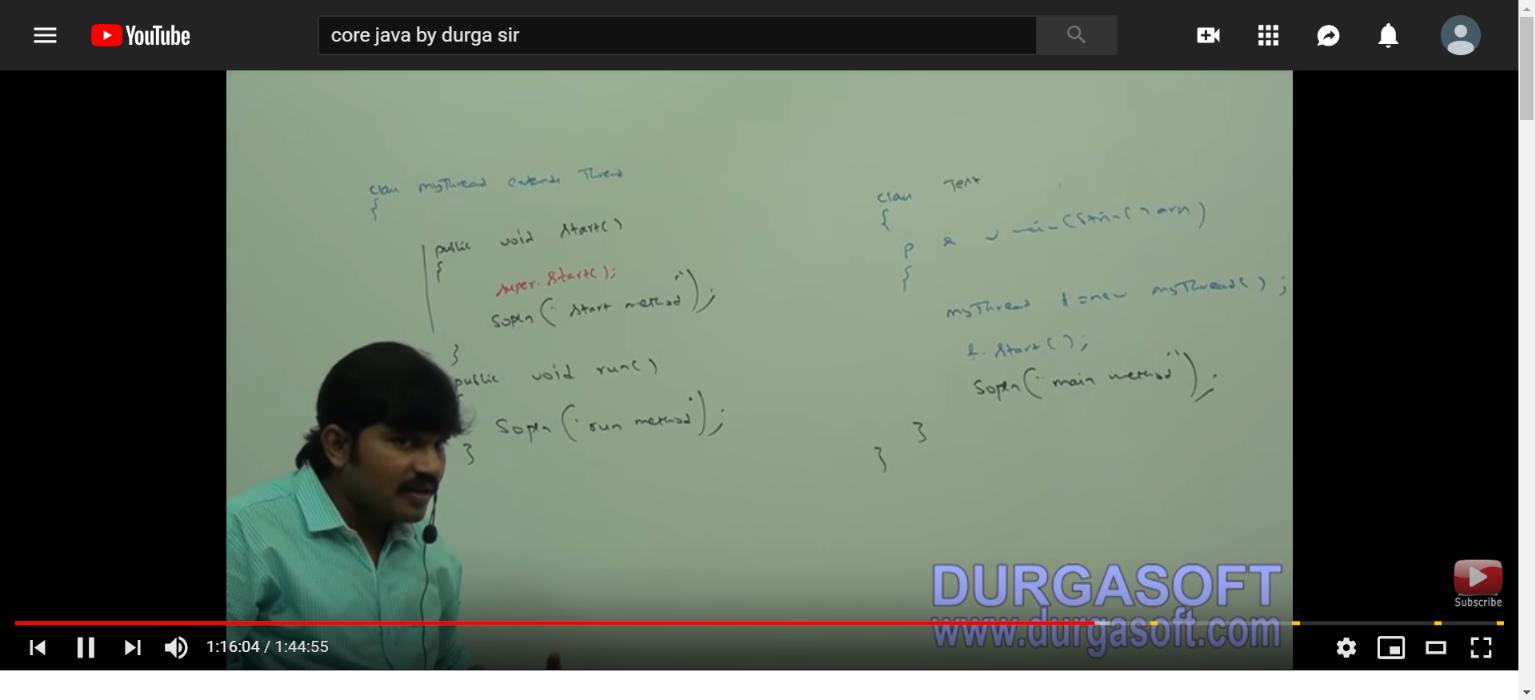 YouTube
core java by durga sir
class myThread extends Thread
{
public void start()
{
super.start();
Sopln("start method");
}
public void run()
{
Sopln("run method");
}
class Test
{
p s v main(String[] args)
{
myThread t = new myThread();
t.start();
Sopln("main method");
}
}
DURGASOFT
www.durgasoft.com
Subscribe
1:16:04 / 1:44:55